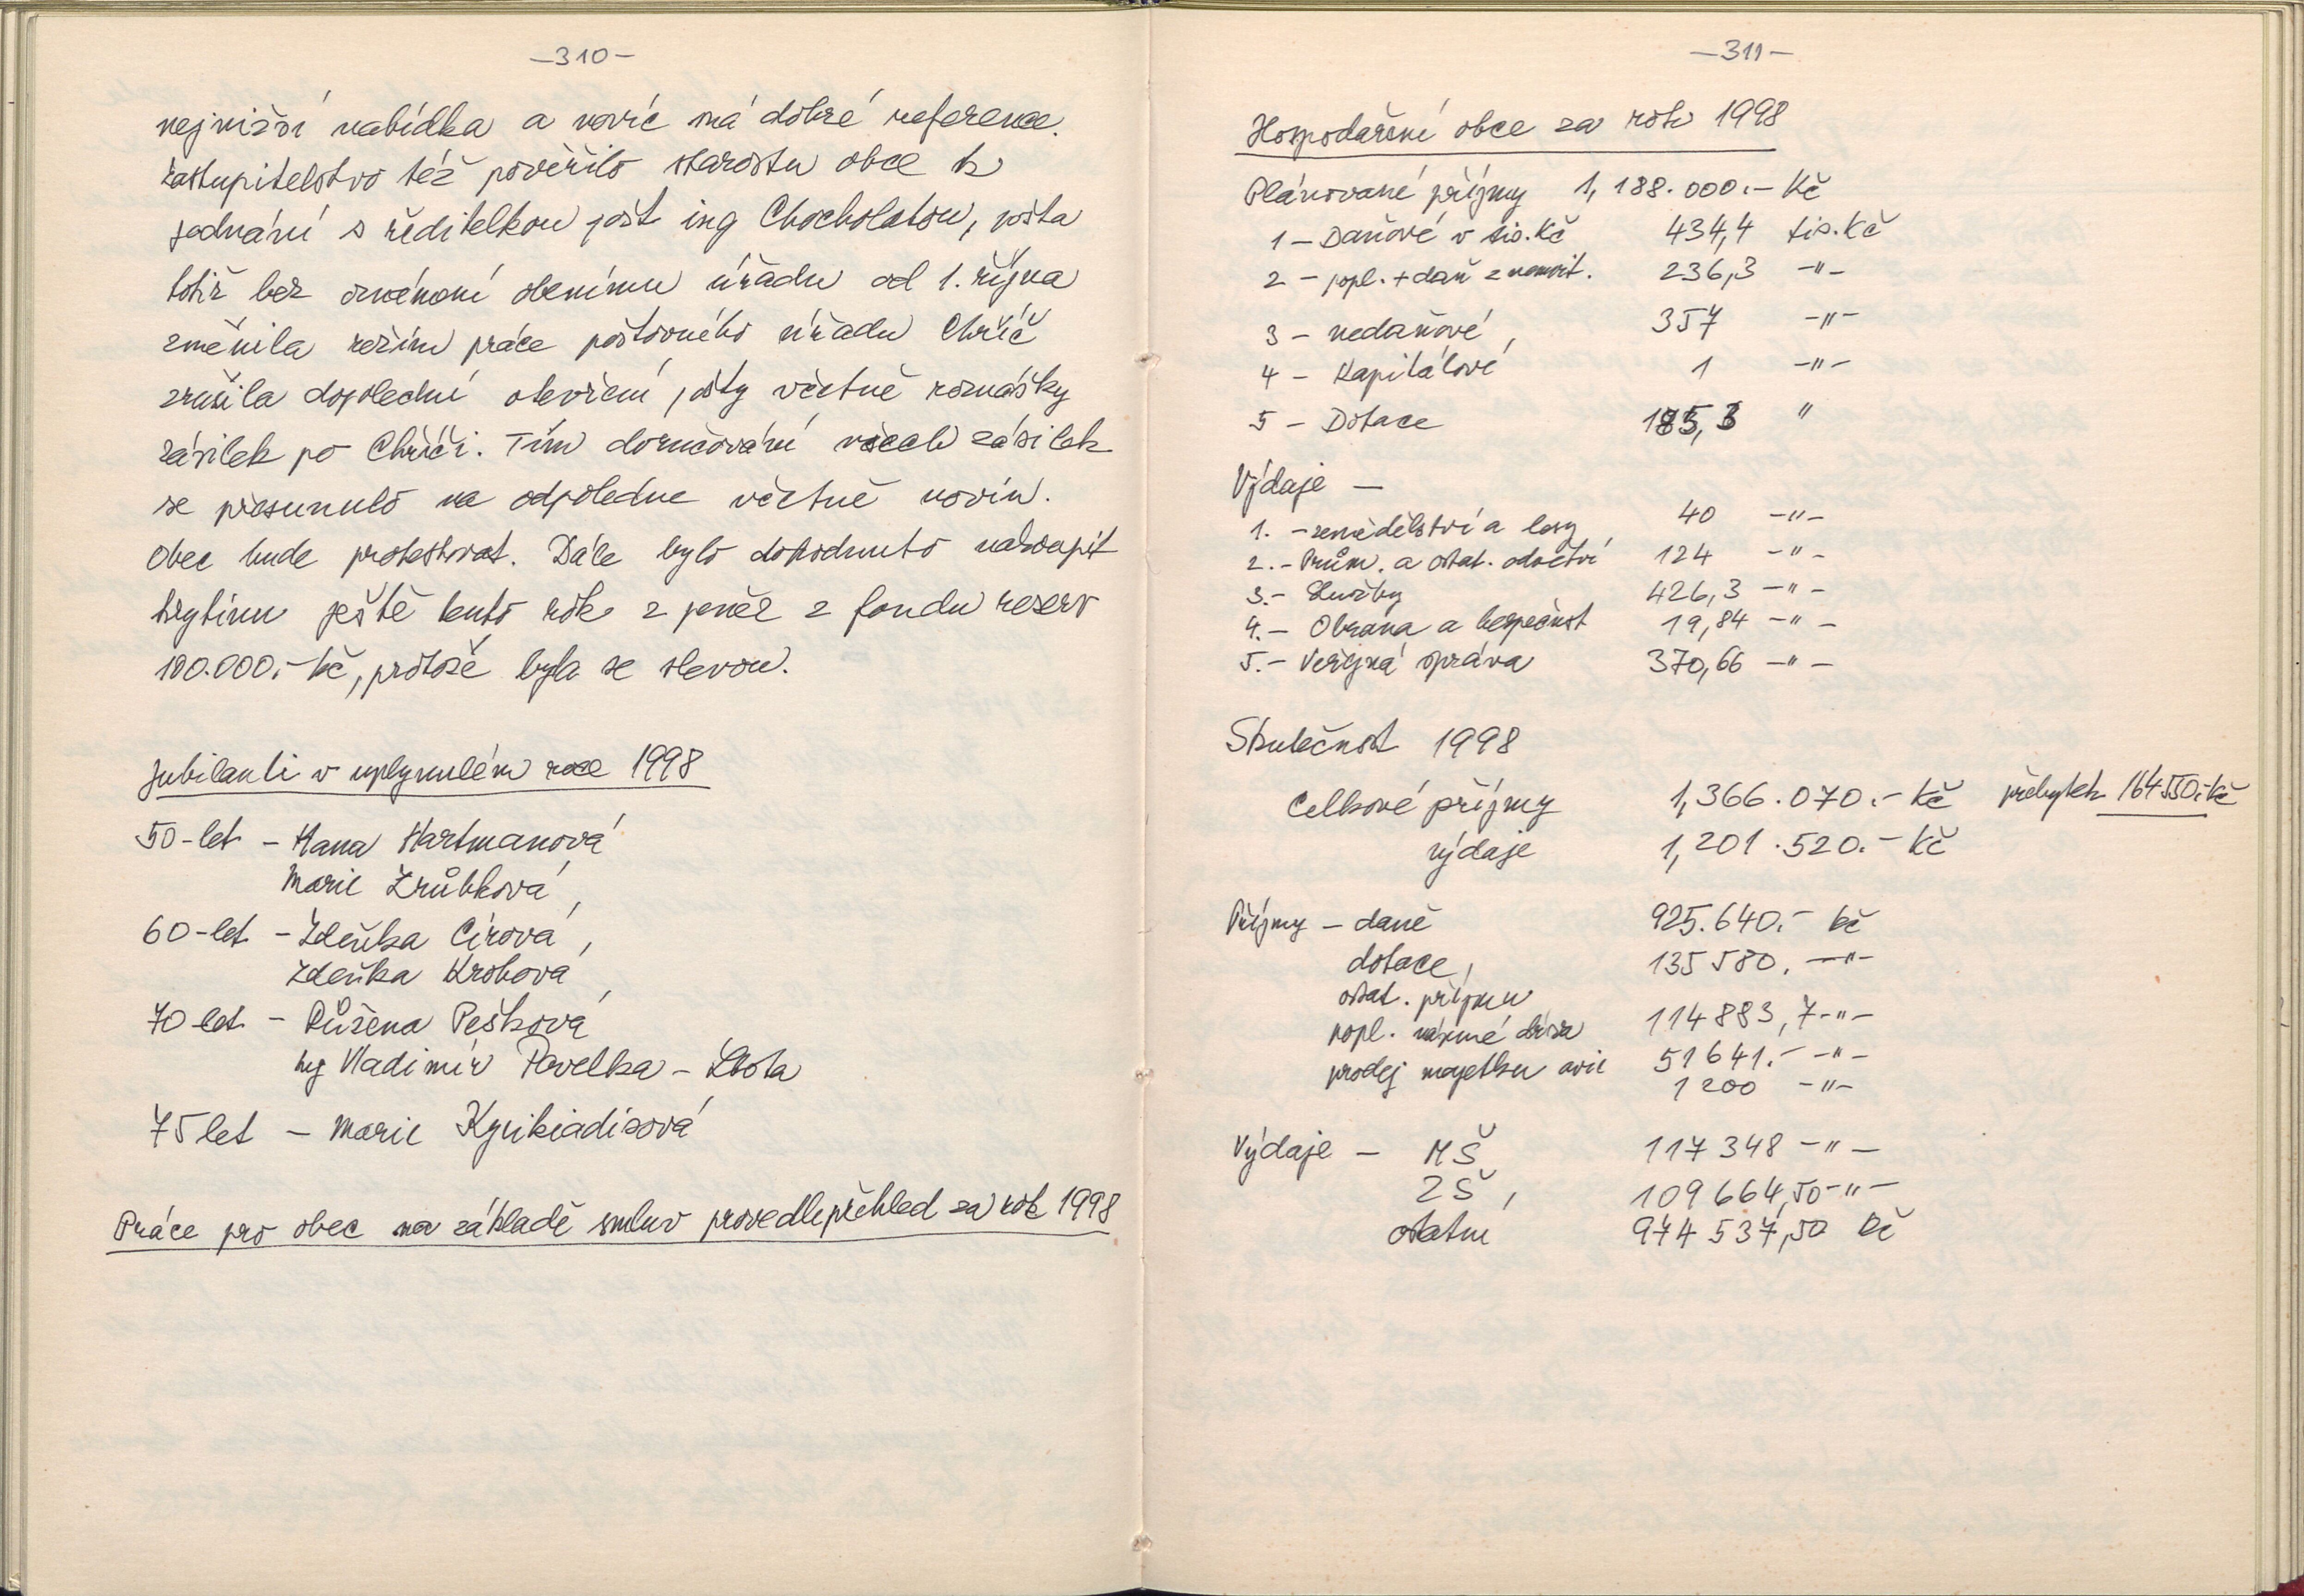 —310—
nejnižší nabídka a navíc má dobré reference.
Zastupitelstvo též pověřilo starostu obce k
jednání s ředitelkou pošt ing Chocholatou, pošta
totiž bez oznámení obecnímu úřadu od 1. října
změnila režim práce poštovního úřadu Chříč
zrušila dopolední otevření pošty včetně roznášky
zásilek po Chříči. Tím doručování všech zásilek
se přesunulo na odpoledne včetně novin.
Obec bude protestovat. Dále bylo dohodnuto nakoupit
krytinu ještě tento rok z peněz z fondu rezerv
100.000.- Kč, protože byla se slevou.
Jubilanti v uplynulém roce 1998
50-let - Hana Hartmanová
Marie Zrůbková,
60-let - Zdeňka Cirová,
Zdeňka Krobová,
70 let - Růžena Pešková
ing Vladimír Pavelka - Lhota
75 let - Marie Kyrikiadisová
Práce pro obec na základě smluv provedli přehled za rok 1998
—311—
Hospodaření obce za rok 1998
Plánované příjmy 1,188.000.- Kč
1 - Daňové v tis. Kč 434,4 tis. Kč
2 - popl. + daň z nemovit. 236,3 -"-
3 - nedaňové, 357 -"-
4 - Kapitálové 1 -"-
5 - Dotace 185,3 "
Výdaje —
1. - zemědělství a lesy 40 -"-
2. - Prům. a ostat. odvětví 124 -"-
3. - Služby 426,3 -"-
4. - Obrana a bezpečnost 19,84 -"-
5. - Veřejná správa 370,66 -"-
Skutečnost 1998
Celkové příjmy 1,366.070.- Kč přebytek 164.550.- Kč
výdaje 1,201.520.- Kč
Příjmy - daně 925.640.- Kč
dotace, 135 580. -"-
ostat. příjmy
popl. 114 883,7 -"-
prodej majetku 51 641.- -"-
1 200 -"-
Výdaje - MŠ 117 348 -"-
ZŠ, 109 664,50 -"-
ostatní 974 537,50 Kč